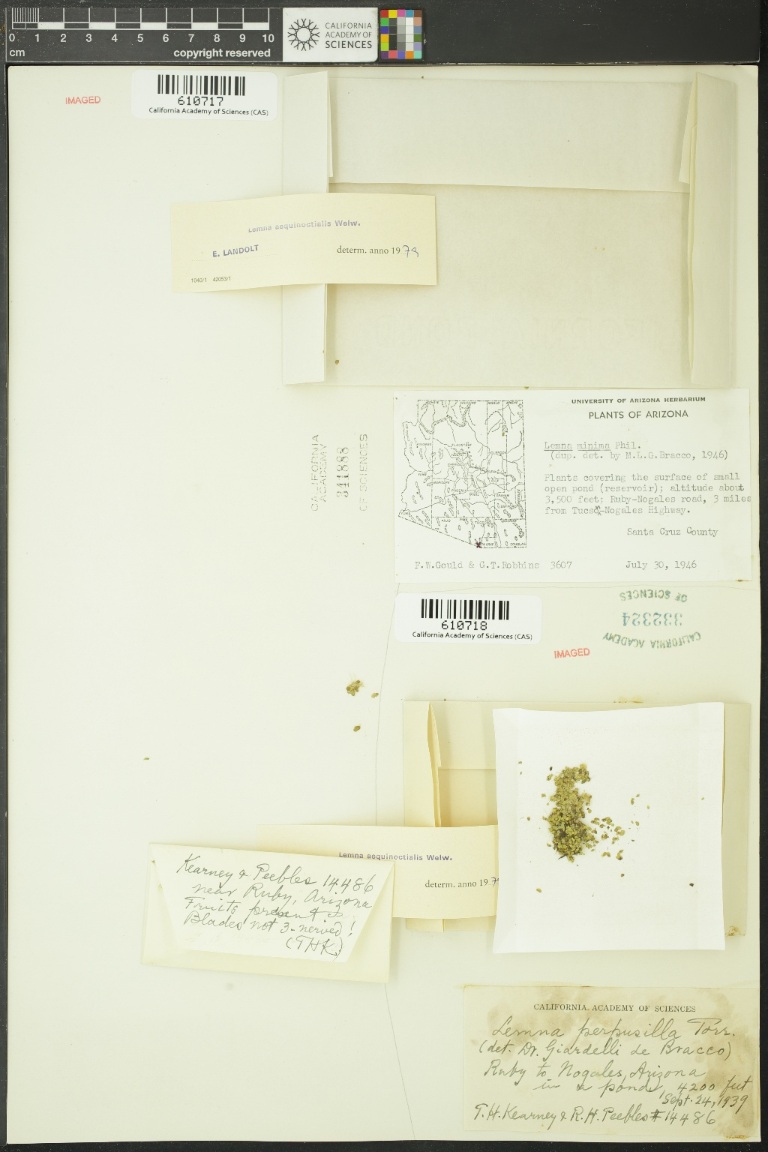 0 1 2 3 4 5 6 7 8 9 10
cm
copyright reserved
CALIFORNIA
ACADEMY OF
SCIENCES
IMAGED
610717
California Academy of Sciences (CAS)
Lemna aequinoctialis Welw.
E. LANDOLT
determ. anno 1979
CALIFORNIA
ACADEMY
341888
OF SCIENCES
UNIVERSITY OF ARIZONA HERBARIUM
PLANTS OF ARIZONA
Lemna minima Phil.
(dup. det. by M.L.G.Bracco, 1946)
Plants covering the surface of small
open pond (reservoir); altitude about
3,500 feet; Ruby-Nogales road, 3 miles
from Tucson-Nogales Highway.
Santa Cruz County
F.W.Gould & C.T.Robbins 3607
July 30, 1946
610718
California Academy of Sciences (CAS)
CALIFORNIA ACADEMY
332324
OF SCIENCES
IMAGED
Lemna aequinoctialis Welw.
determ. anno 197
Kearney & Peebles 14486
near Ruby, Arizona
Fruits present &
Blades not 3-nerved!
(THK)
CALIFORNIA ACADEMY OF SCIENCES
Lemna perpusilla Torr.
(det. Dr. Giardelli de Bracco)
Ruby to Nogales, Arizona
in a pond, 4200 feet
Sept. 24, 1939
T.H.Kearney & R.H.Peebles # 14486